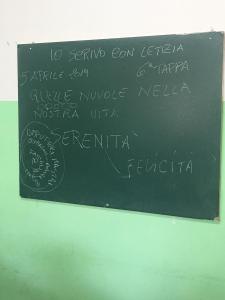 IO SCRIVO CON LETIZIA
5 APRILE 2019
6ª TAPPA
QUELLE NUVOLE NELLA
NOSTRA VITA
SERENITÀ
FELICITÀ